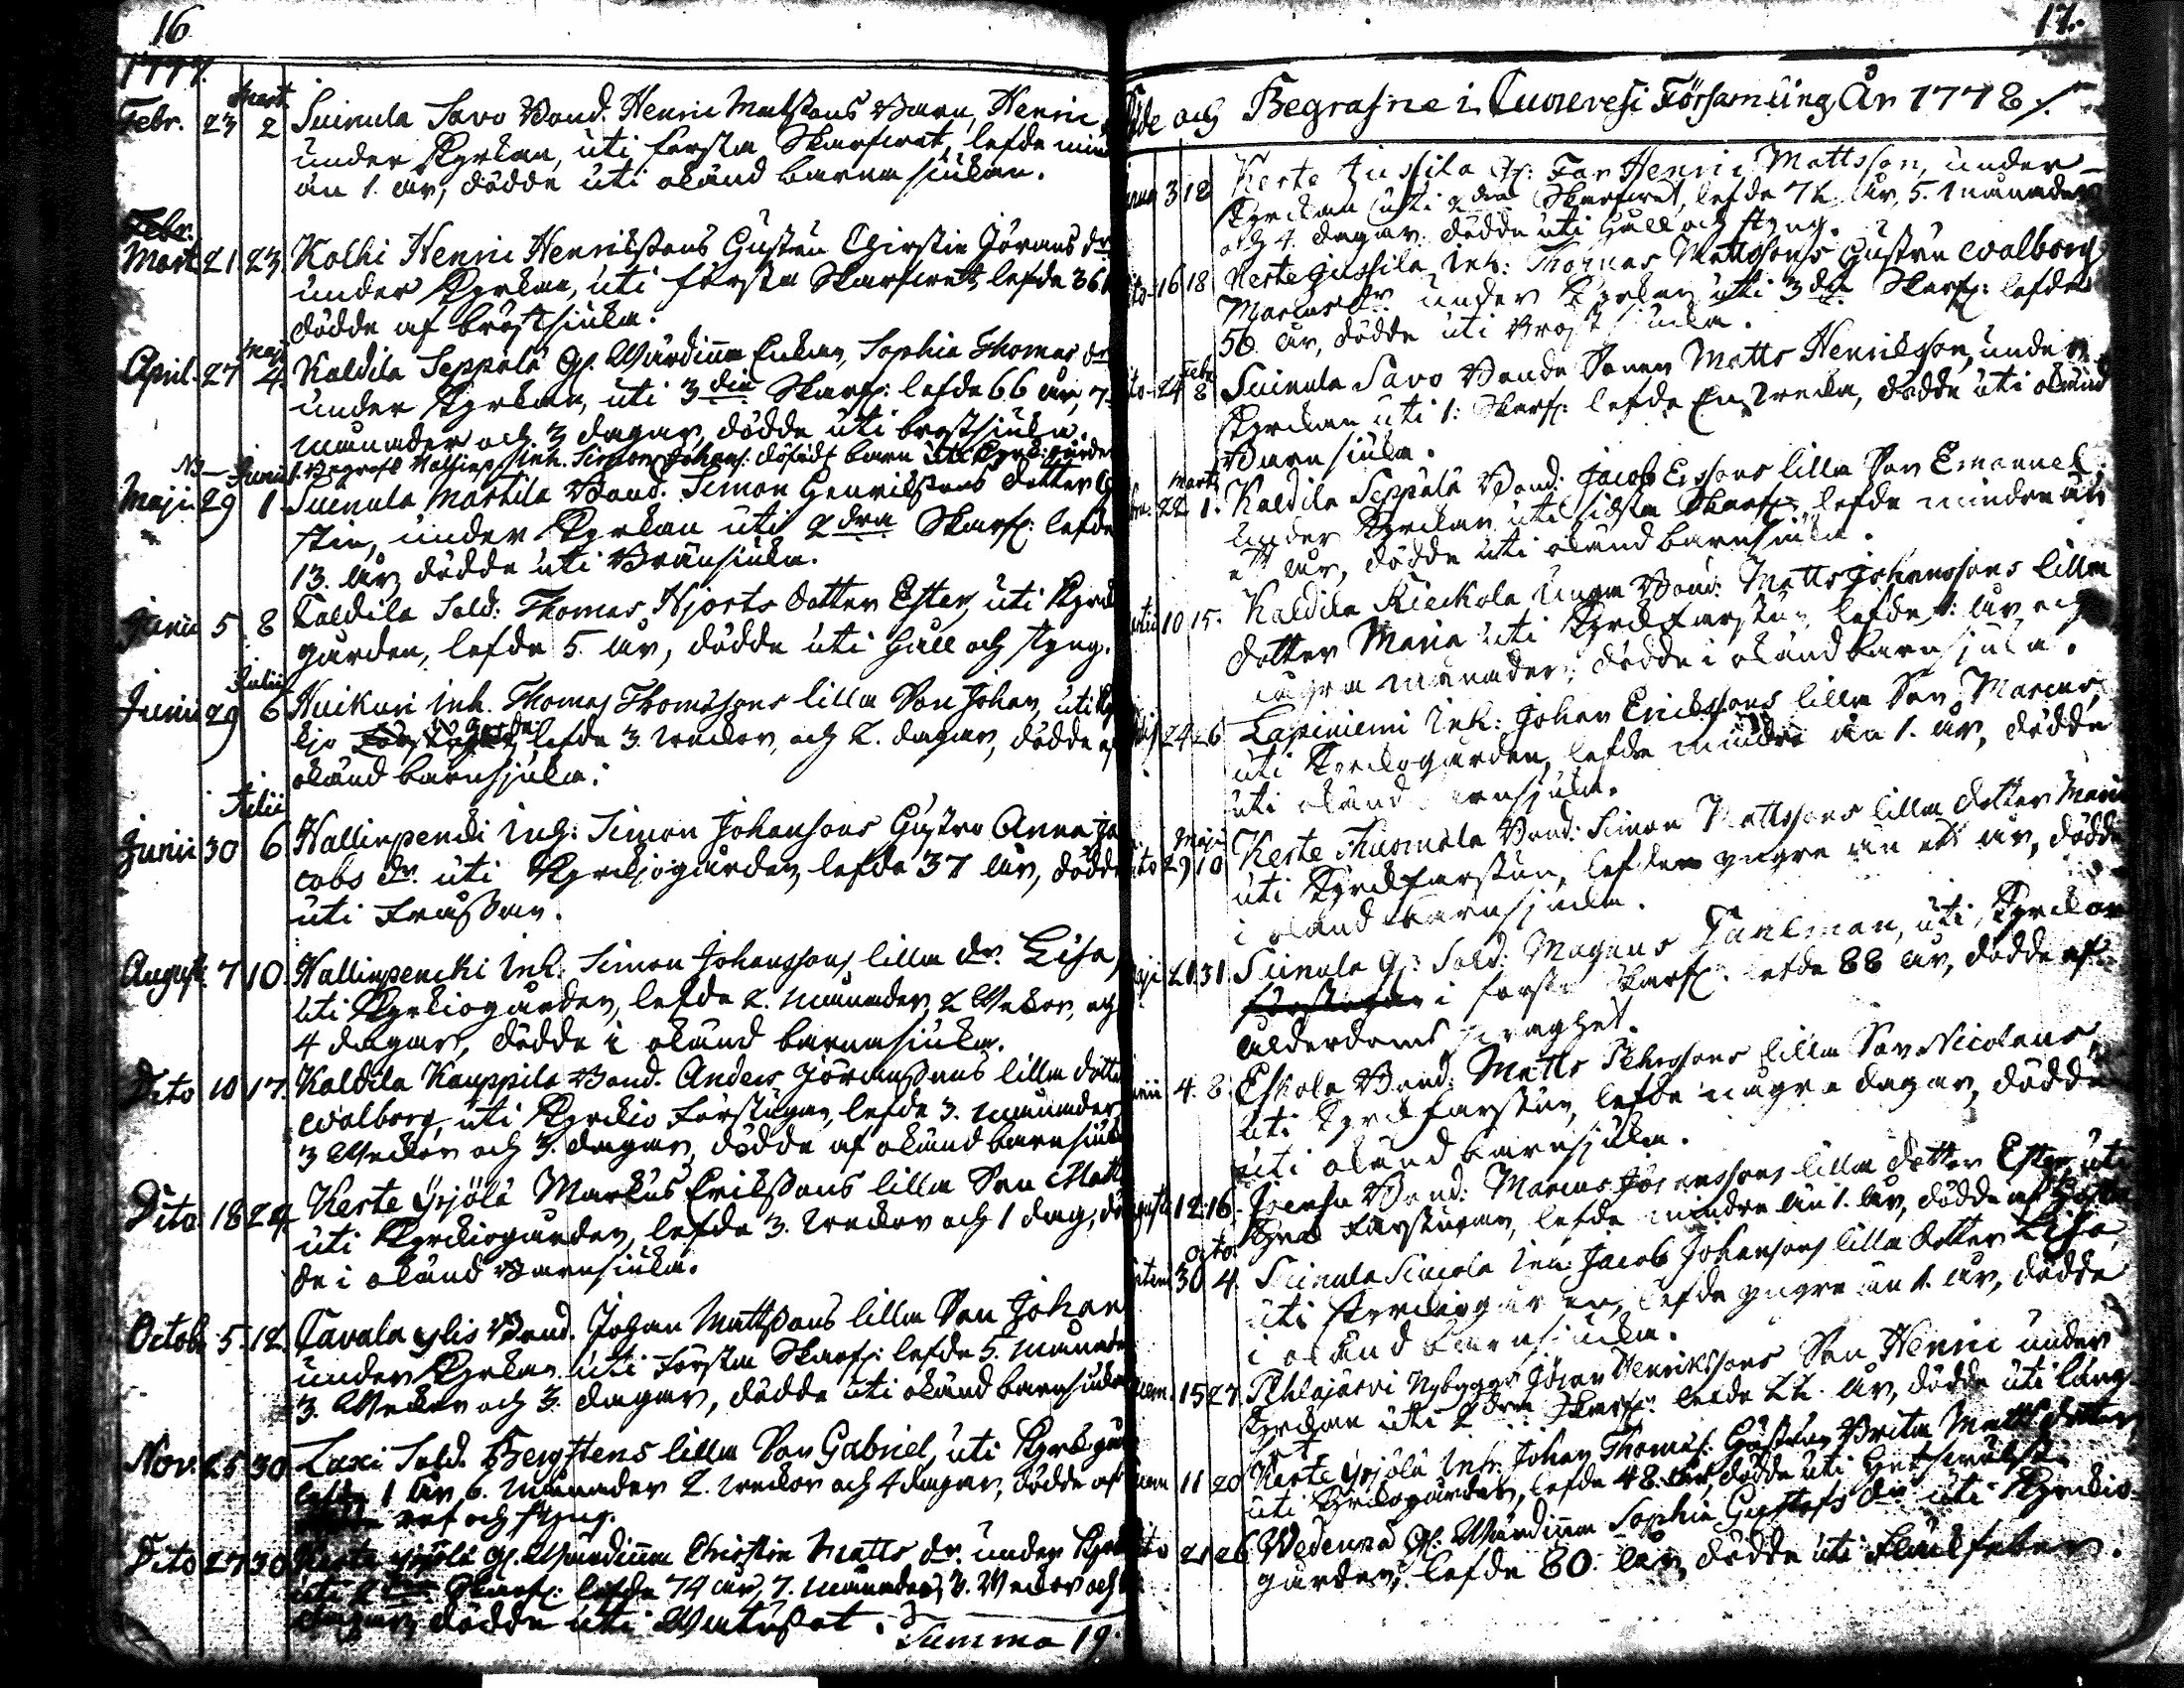 16
1777.
Mart.
Febr. 23 2 Suinula Savo Bond. Henric Matssons Barn, Henric
under Kyrkan, uti första Skarfwet, lefde min
än 1. år, dödde uti okänd barnasiukan.
Febr.
Mart. 21 23 Kolhi Henric Henrikssons Hustru Chirstin Jörans dr
under Kyrkan, uti första Skarfwet, lefde 36
dödde af bröstsiuka.
Maji
April. 27 4. Kaldila Seppälä Gl. Wärdinna Enkan, Sophia Thomas dr
under Kyrkan, uti 3die Skarf: lefde 66 år, 7
månader och 3 dagar, dödde uti bröstsiuka.
NB Junii 1. Begrofs Inh. Simon Johans: dödfödt barn
Maji 29 1 Suinula Martila Bond. Simon Henrikssons dotter
stin, under Kyrkan uti 2dra Skarf: lefde
13. år, dödde uti Bränsiuka.
Junii 5 8 Kaldila Sold: Thomas Hjorts dotter Ester, uti Kyrk
gården, lefde 5. år, dödde uti Håll och styng.
Julii
Junii 29 6 Huikuri Inh. Thomas Thomassons lilla Son Johan, uti
lefde 3. weckor, och 2. dagar, dödde af
okänd barnsjuka.
Julii
Junii 30 6 Hallinpencki Inh: Simon Johansons Hustru Anna Ja
cobs dr. uti Kyrkjogården, lefde 37 år, dödde
uti Frussan.
August: 7 10 Hallinpencki Inh. Simon Johanssons lilla dr. Lisa,
uti Kyrkiogården, lefde 2. månader, 2 Wekor, och
4 dagar, dödde i okänd barnasiuka.
Dito 10 17. Kaldila Kauppila Bond. Anders Jöranssons lilla dotte
Walborg, uti Kyrckio Förstugan, lefde 3. månader
3 Weckor och 3. dagar, dödde af okänd barnsiuk
Dito 18 24 Kerte Yrjölä Markus Erikssons lilla Son Matt
uti Kyrckiogården, lefde 3. weckor och 1 dag, dö
de i okänd Barnsiuka.
Octob. 5. 12. Tavala Ylis Bond. Johan Mattssons lilla Son Johan
under Kyrkan uti Första Skarf: lefde 5. månader
3. Weckor och 3. dagar, dödde uti okänd barnsiuka
Nov. 25 30 Laxi Sold. Bergstens lilla Son Gabriel, uti Kyrkgår
lefde 1 år 6. månader 2. weckor och 4 dagar, dödde af
ref och styng.
Dito 27 30 Kerte Yrjölä Gl. Wärdinna Christin Matts dr. under Kyrk
uti 2dra Skarf: lefde 74 år, 7. månader, 2. Weckor och
dagar, dödde uti Wattusot.
Summa 19.
17.
och Begrafne i Luureresi Församling År 1778.
3 12 Kerte Jussila Gl: Far Henric Mattsson, under
Kyrckan uti 2dra Skarfwet, lefde 72. år, 5. månader
och 4. dagar dödde uti Håll och styng.
16 18 Kerte Jussila Inh: Thomas Mattssons Hustru Walborg
Marcus dr under Kyrkan uti 3die Skarf: lefde
56. år, dödde uti Bröstsiuka.
Febr
24 8 Suinula Savo Bonde Sonen Matts Henriksson, under
Kyrckan uti 1: Skarf: lefde En Wecka, dödde uti okänd
Barnsiuka.
Marti
22 1. Kaldila Seppälä Bond: Jacob Erssons lilla Son Emanuel
under Kyrckan uti sidsta Skarf: lefde mindre än
ett år, dödde uti okänd barnsiuka.
10 15. Kaldila Kieckola Unga Bond: Matts Johanssons lilla
dotter Maria uti Kyrckfarstun, lefde 1. år, och
några månader, dödde i okänd barnsjuka.
24 26 Lapiniemi Inh: Johan Erikssons lilla Son Marcus,
uti Kyrckogården, lefde mindre än 1. år, dödde
uti okänd barnsjuka.
Maji
29 10 Kerte Thuomala Bond: Simon Mattssons lilla dotter Maria
uti Kyrckfarstun, lefde yngre än ett år, dödde
i okänd barnsjuka.
31 Suinula Gl: Sold: Magnus Parlman, uti Kyrckan
i första Skarf: lefde 88 år, dödde af
ålderdoms swaghet.
4. 8. Eskola Bond: Matts Pehrssons lilla Son Nicolaus,
uti Kyrckfarstun, lefde några dagar, dödde
uti okänd barnsjuka.
12 16. Bond: Marcus Jöranssons lilla dotter Ester, uti
Kyrck Farstugan, lefde mindre än 1. år, dödde af
Octo.
30 4. Suinula Sucola Inh: Jacob Johansons lilla dotter Lisa,
uti Kyrckiogården, lefde yngre än 1. år, dödde
i okänd barnsiuka.
15 27. Pehlajärvi Nybyggar Jöran Henrikssons Son Henric under
Kyrckan uti 2dra Skarf: lefde 22. år, dödde uti Lung
sot
11 20 Kerte Yrjölä Inh: Johan Thomæs: Hustru Brita Matts dotter,
uti Kyrckogården, lefde 48. år, dödde uti
21 26 Wedenpä Gl: Wärdinna Sophia Gustafs dr uti Kyrckio-
gården, lefde 80. år, dödde uti Fläckfeber.